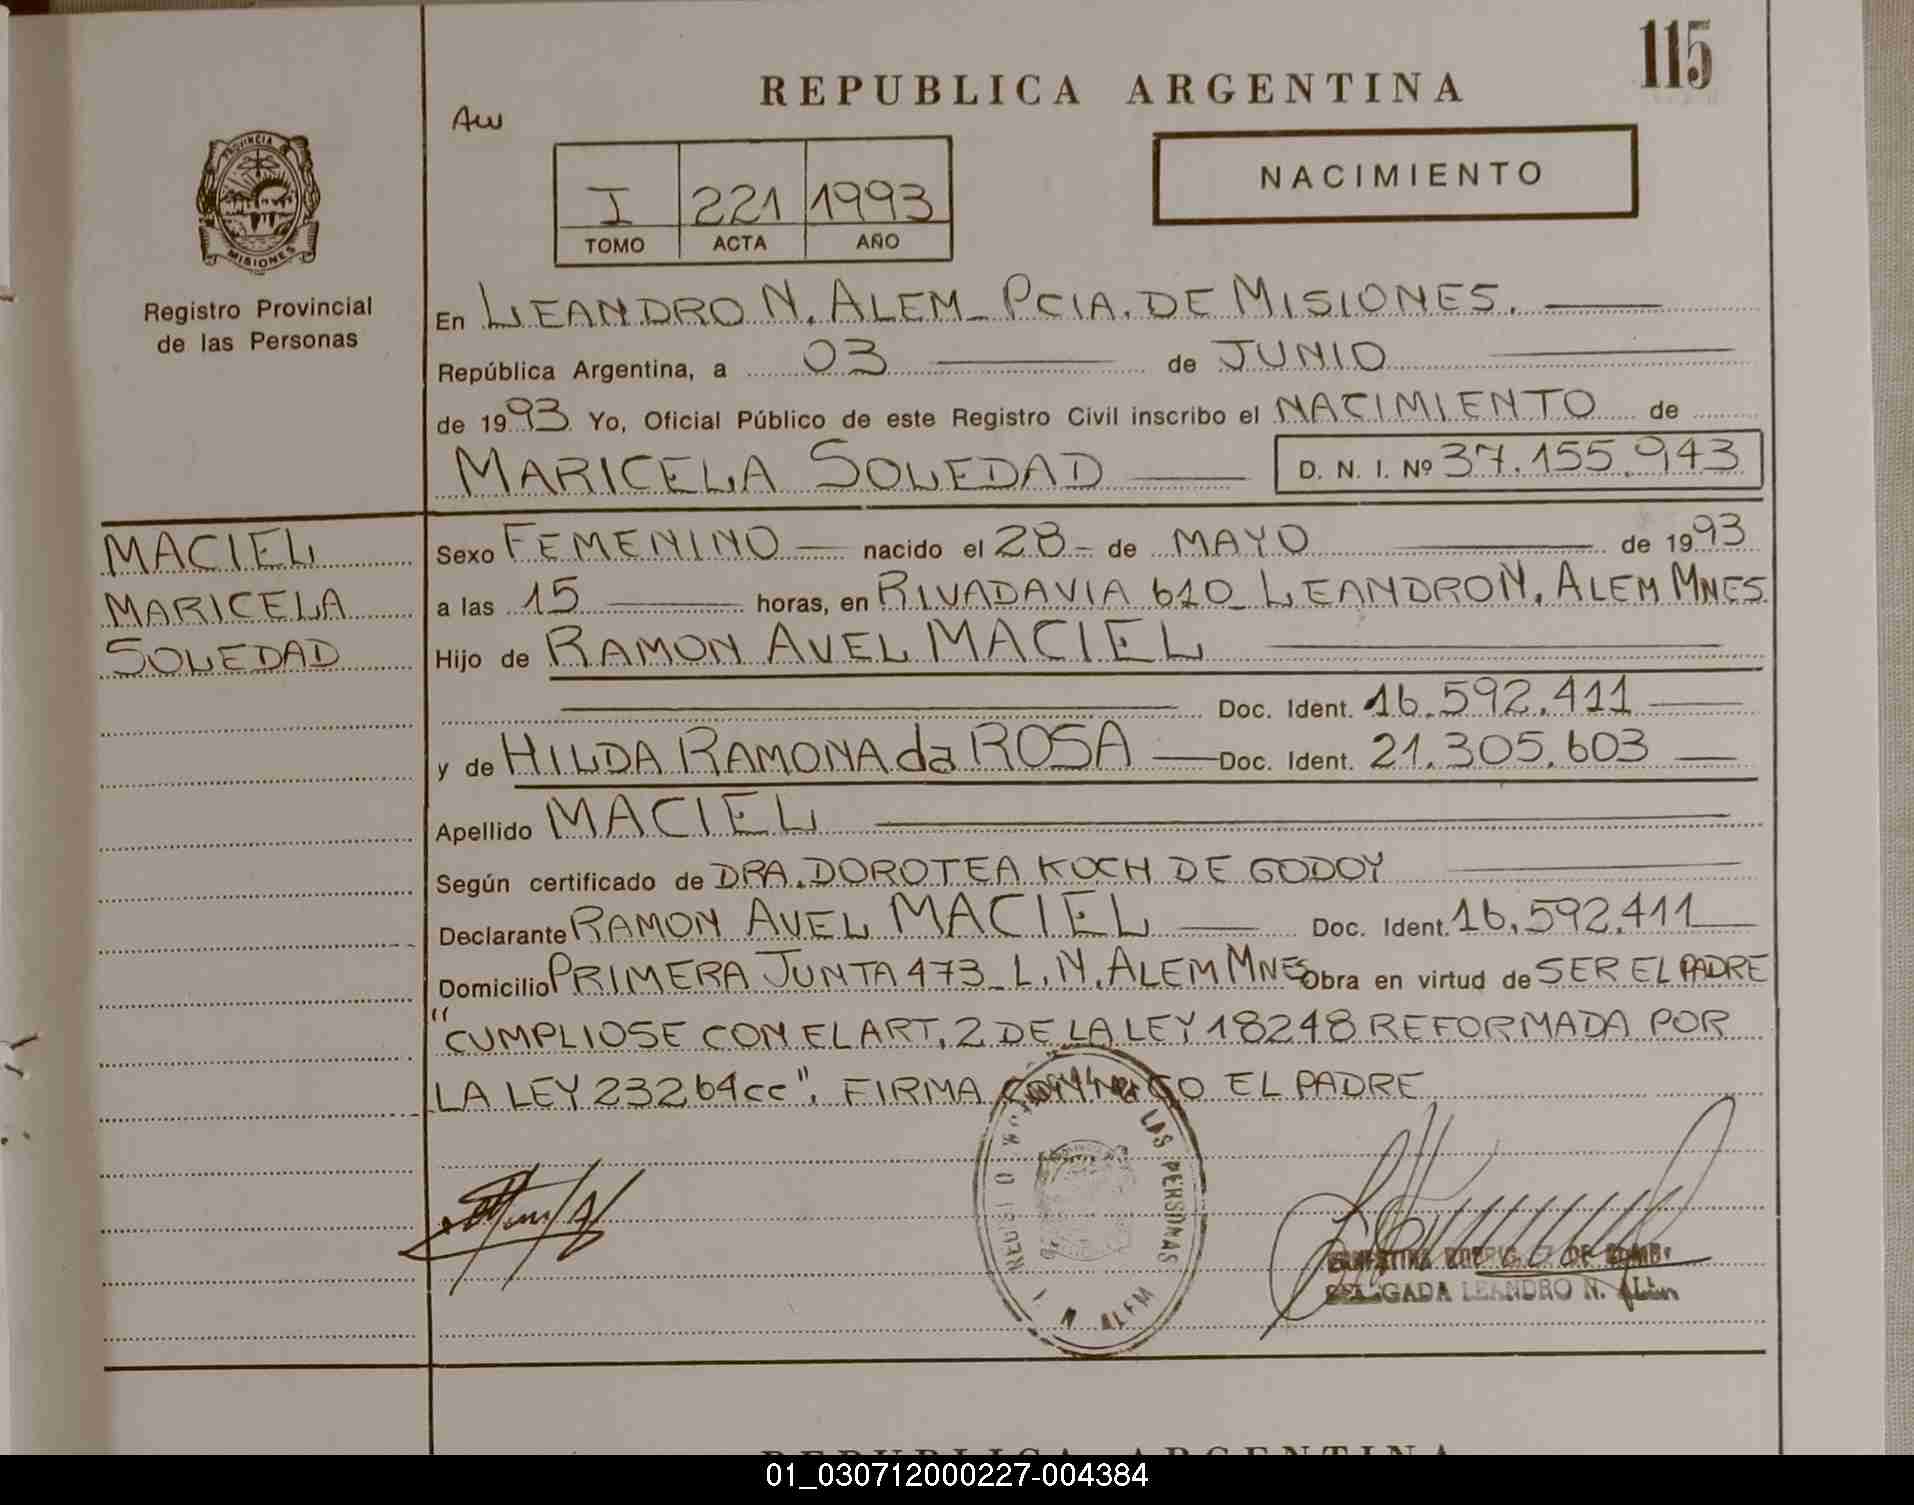 115
REPUBLICA ARGENTINA
Aw
PROVINCIA
MISIONES
Registro Provincial
de las Personas
I 221 1993
TOMO ACTA AÑO
NACIMIENTO
En LEANDRO N. ALEM_ PCIA. DE MISIONES.
República Argentina, a 03 de JUNIO
de 1993 Yo, Oficial Público de este Registro Civil inscribo el NACIMIENTO de
MARICELA SOLEDAD D. N. I. Nº 37.155.943
MACIEL
MARICELA
SOLEDAD
Sexo FEMENINO nacido el 28 de MAYO de 1993
a las 15 horas, en RIVADAVIA 610_ LEANDRO N. ALEM MNES
Hijo de RAMON AVEL MACIEL
Doc. Ident. 16.592.411
y de HILDA RAMONA da ROSA Doc. Ident. 21.305.603
Apellido MACIEL
Según certificado de DRA. DOROTEA KOCH DE GODOY
Declarante RAMON AVEL MACIEL Doc. Ident. 16.592.411
Domicilio PRIMERA JUNTA 473_ L. N. ALEM MNES Obra en virtud de SER EL PADRE
"CUMPLIOSE CON EL ART. 2 DE LA LEY 18248 REFORMADA POR
LA LEY 23264cc". FIRMA CONMIGO EL PADRE
LAS PERSONAS
N ALEM
DELEGADA LEANDRO N. ALEM
REPUBLICA ARGENTINA
01_030712000227-004384